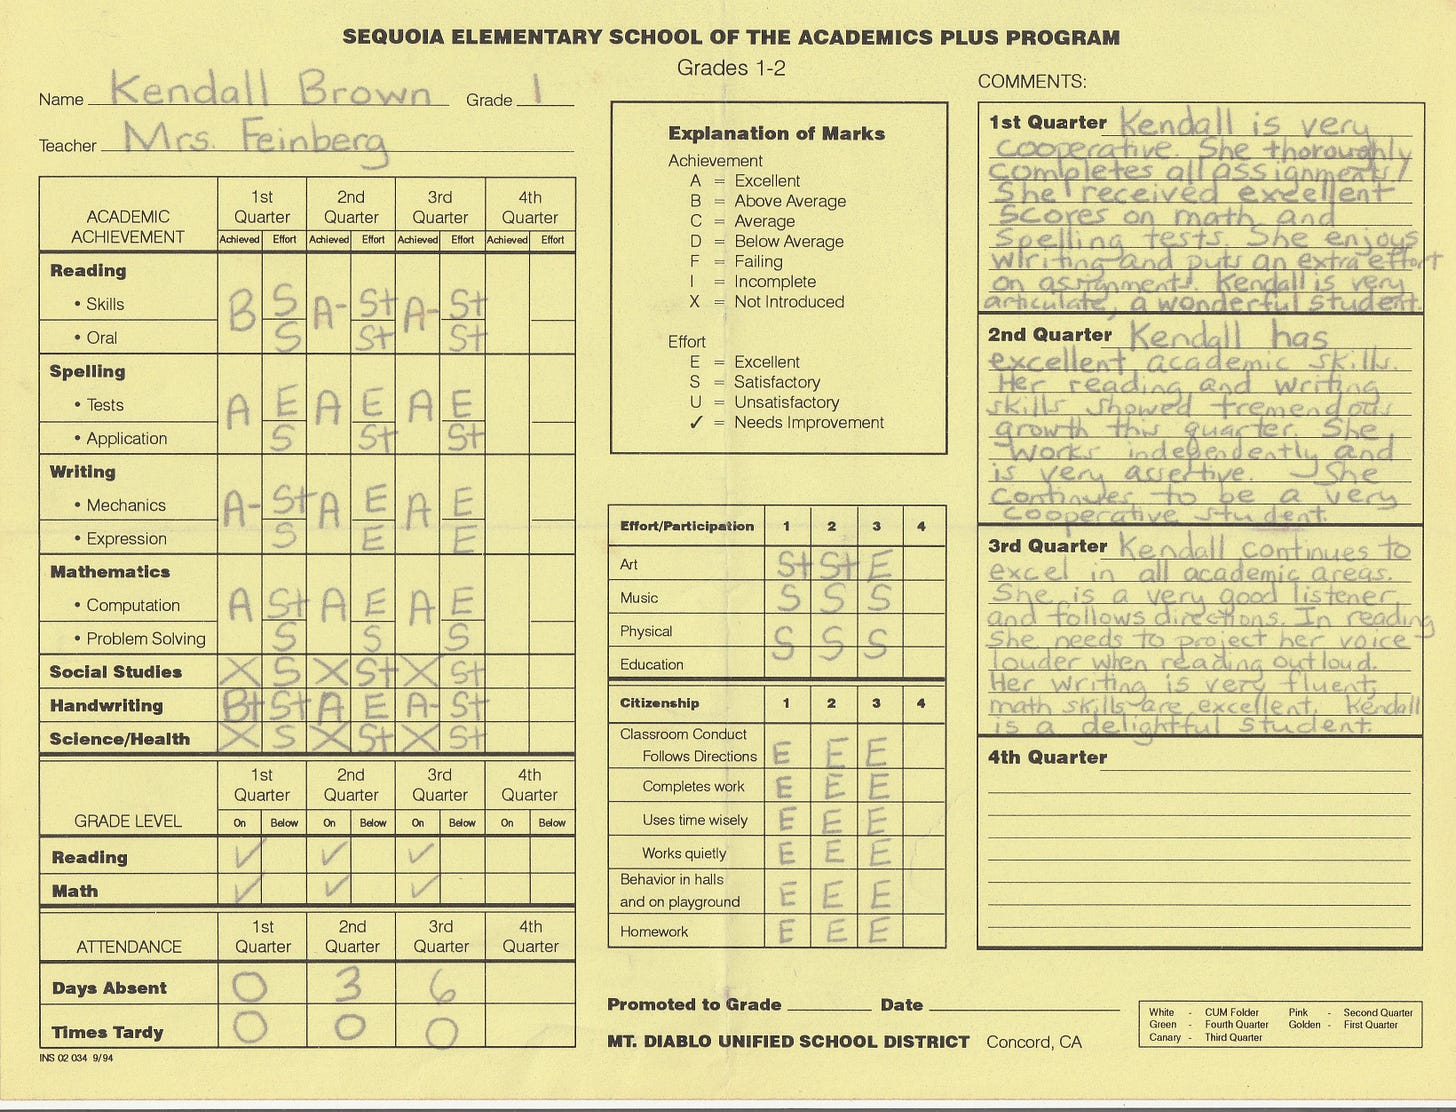 SEQUOIA ELEMENTARY SCHOOL OF THE ACADEMICS PLUS PROGRAM
Grades 1-2
Name Kendall Brown Grade 1
Teacher Mrs. Feinberg
ACADEMIC ACHIEVEMENT 1st Quarter 2nd Quarter 3rd Quarter 4th Quarter
Achieved Effort Achieved Effort Achieved Effort Achieved Effort
Reading
• Skills B S A- S+ A- S+
• Oral S S+ S+
Spelling
• Tests A E A E A E
• Application S S+ S+
Writing
• Mechanics A- S+ A E A E
• Expression S E E
Mathematics
• Computation A S+ A E A E
• Problem Solving S S S
Social Studies X S X S+ X S+
Handwriting B+ S+ A E A- S+
Science/Health X S X S+ X S+
GRADE LEVEL 1st Quarter 2nd Quarter 3rd Quarter 4th Quarter
On Below On Below On Below On Below
Reading ✓ ✓ ✓
Math ✓ ✓ ✓
ATTENDANCE 1st Quarter 2nd Quarter 3rd Quarter 4th Quarter
Days Absent 0 3 6
Times Tardy 0 0 0
INS 02 034 9/94
Explanation of Marks
Achievement
A = Excellent
B = Above Average
C = Average
D = Below Average
F = Failing
I = Incomplete
X = Not Introduced
Effort
E = Excellent
S = Satisfactory
U = Unsatisfactory
✓ = Needs Improvement
Effort/Participation 1 2 3 4
Art S+ S+ E
Music S S S
Physical
Education S S S
Citizenship 1 2 3 4
Classroom Conduct
Follows Directions E E E
Completes work E E E
Uses time wisely E E E
Works quietly E E E
Behavior in halls
and on playground E E E
Homework E E E
Promoted to Grade Date
MT. DIABLO UNIFIED SCHOOL DISTRICT Concord, CA
COMMENTS:
1st Quarter Kendall is very
cooperative. She thoroughly
completes all assignments!
She received excellent
scores on math and
spelling tests. She enjoys
writing and puts an extra effort
on assignments. Kendall is very
articulate, a wonderful student.
2nd Quarter Kendall has
excellent academic skills.
Her reading and writing
skills showed tremendous
growth this quarter. She
works independently and
is very assertive. She
continues to be a very
cooperative student.
3rd Quarter Kendall continues to
excel in all academic areas.
She is a very good listener
and follows directions. In reading
she needs to project her voice
louder when reading out loud.
Her writing is very fluent,
math skills are excellent. Kendall
is a delightful student.
4th Quarter
White - CUM Folder Pink - Second Quarter
Green - Fourth Quarter Golden - First Quarter
Canary - Third Quarter